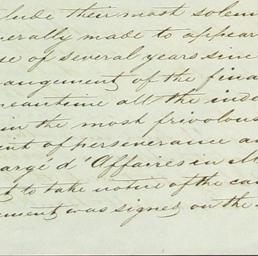 clude their most solemn
nerally made to appear
se of several years since
angement of the fina
meantime all the inde
in the most frivolous
ent of perseverance a
hargé d'Affaires in all
t to take notice of the ca
ement was signed on the